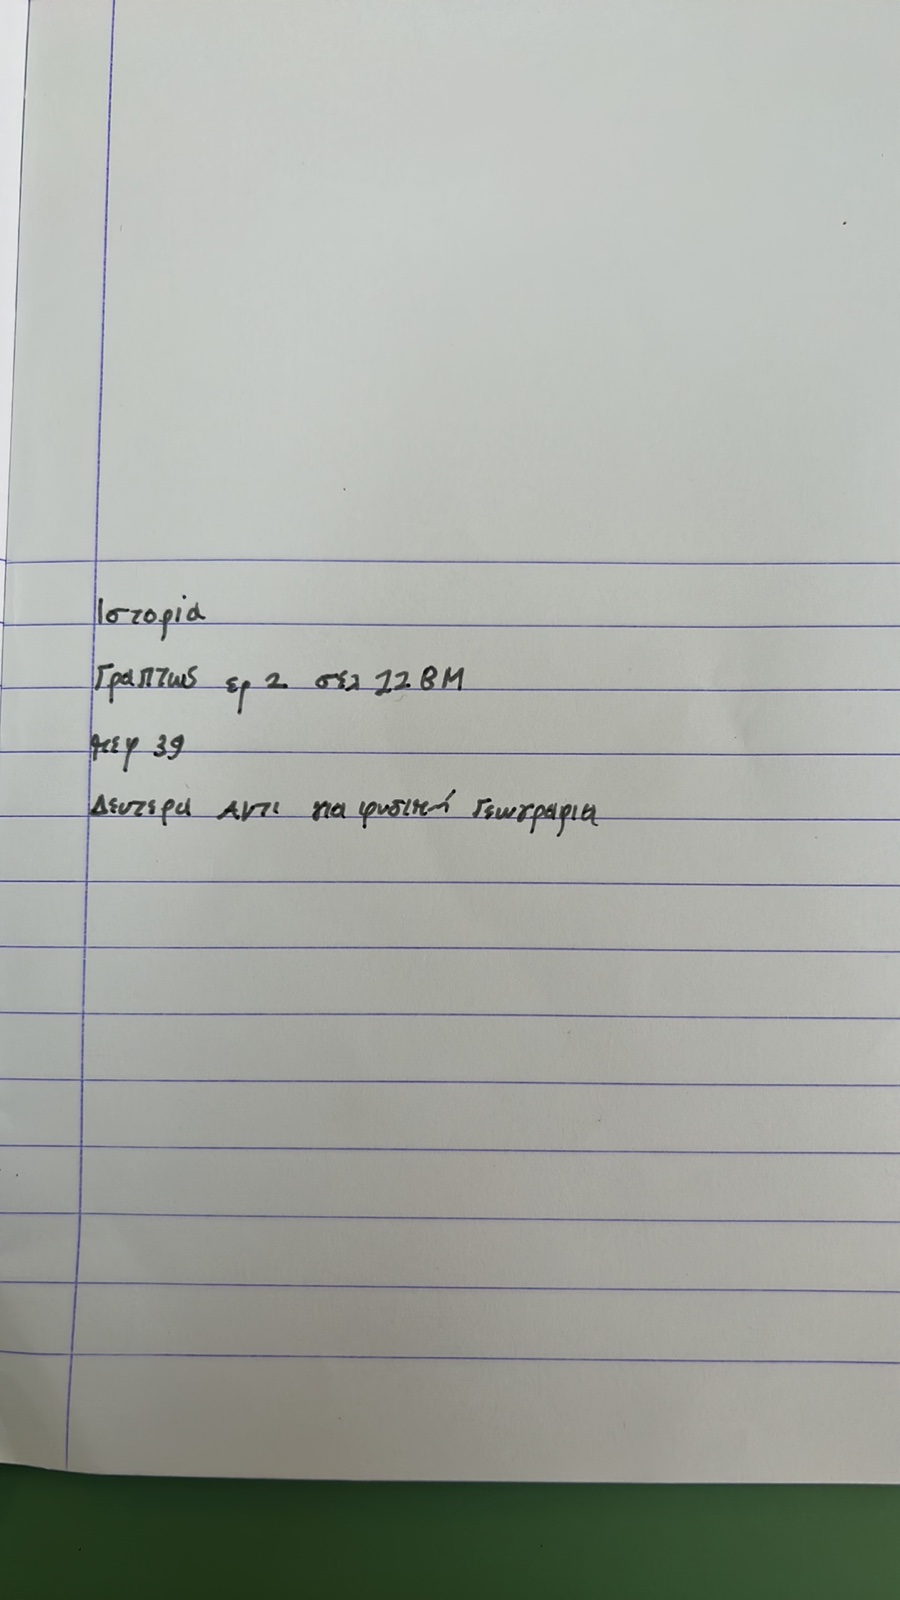 Ιστορία
Γραπτως ερ 2 σελ 12 ΒΜ
κεφ 39
Δευτερα Αντι για φυσική Γεωγραφια